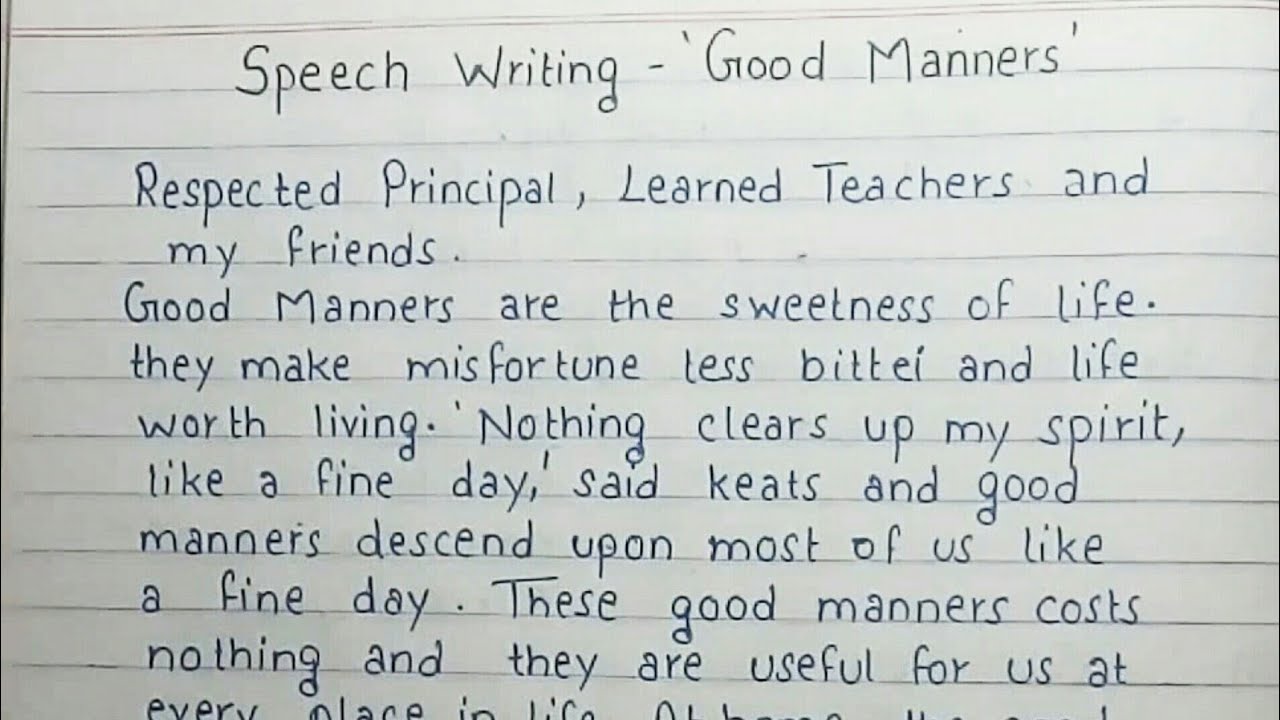 Speech Writing - 'Good Manners'
Respected Principal, Learned Teachers and
my friends.
Good Manners are the sweetness of life.
they make misfortune less bitter and life
worth living. 'Nothing clears up my spirit,
like a fine day,' said keats and good
manners descend upon most of us like
a fine day. These good manners costs
nothing and they are useful for us at
every place in life. At home, the good